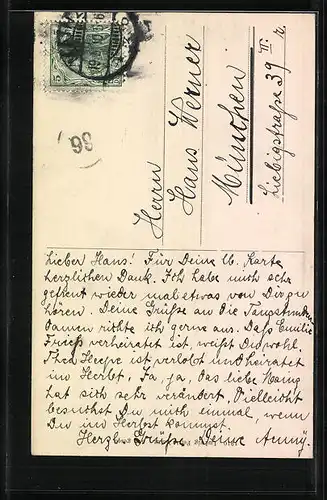 Herrn
Hans Werner
München
Liebigstraße 39 III r.
5
99
Lieber Hans! Für Deine lb. Karte
herzlichen Dank. Ich habe mich sehr
gefreut wieder mal etwas von Dir zu
hören. Deine Grüße an die Tanzstunden
Damen richte ich gerne aus. Daß Emilie
verheiratet ist, weißt Du wohl.
Thea ist verlobt und heiratet
im Herbst. Ja, ja, das liebe Mainz
hat sich sehr verändert. Vielleicht
besuchst Du mich einmal, wenn
Du im Herbst kommst.
Herzl. Grüße Deine Aenny.